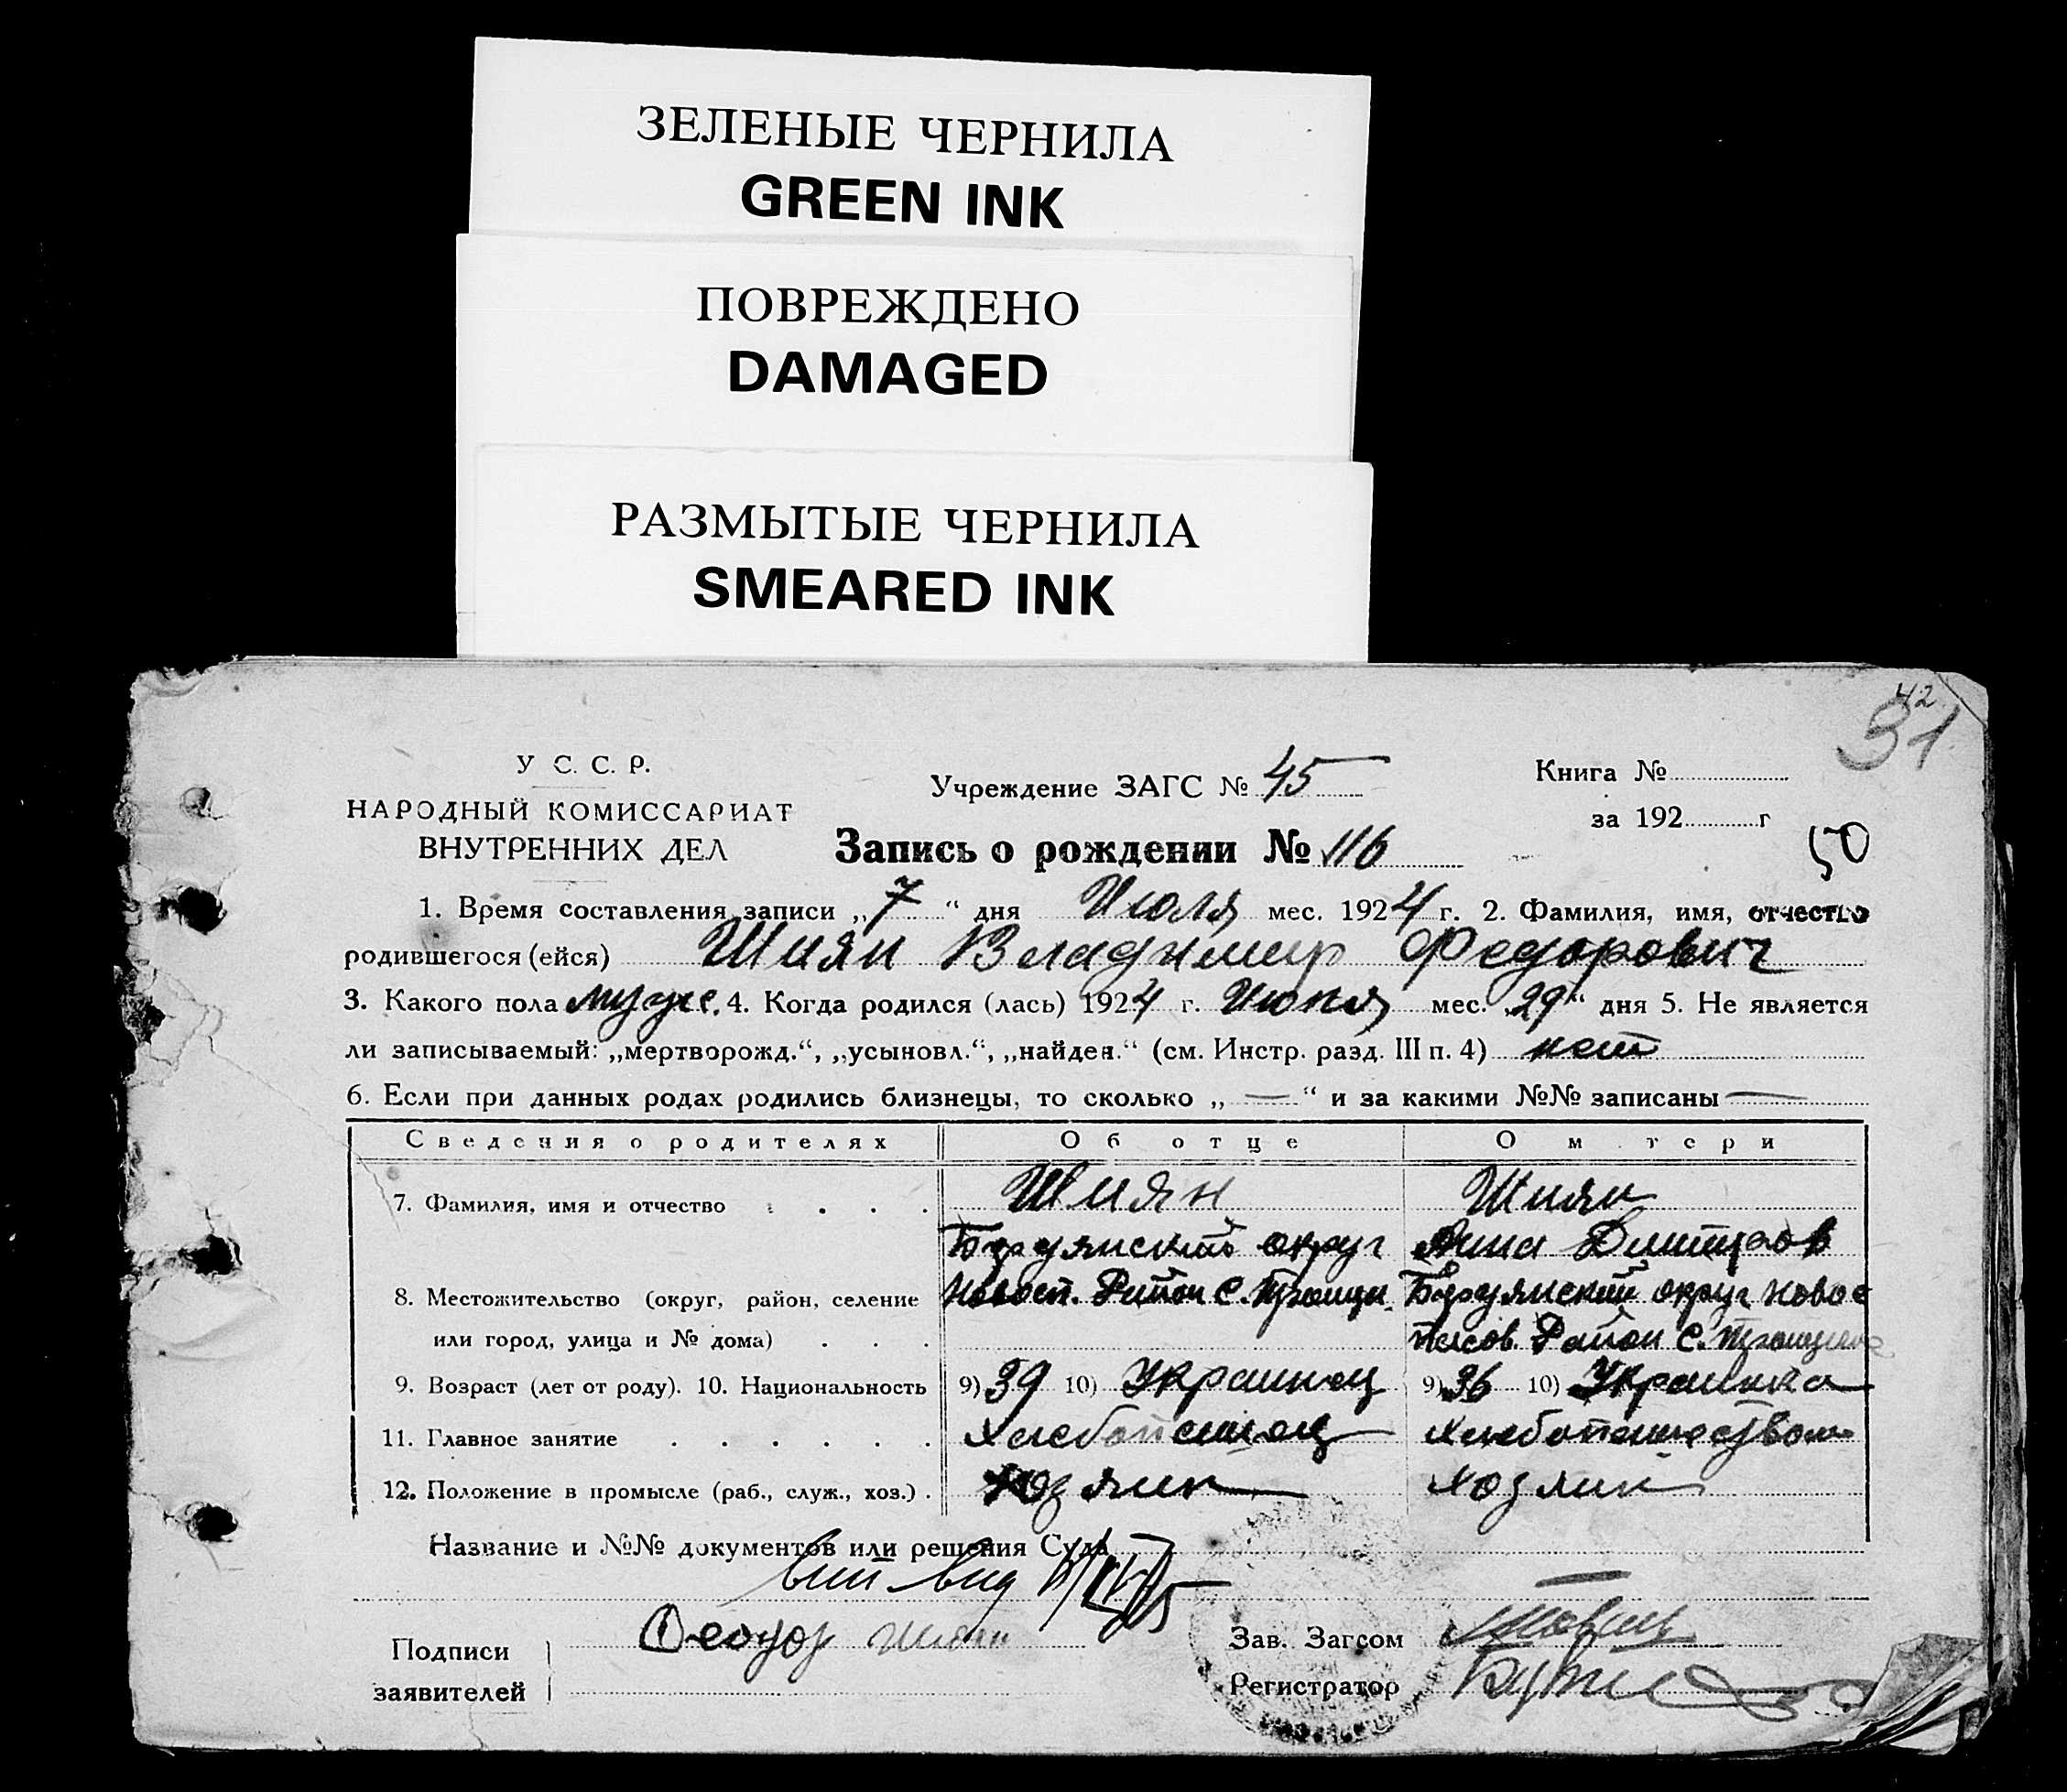 ЗЕЛЕНЫЕ ЧЕРНИЛА
GREEN INK
ПОВРЕЖДЕНО
DAMAGED
РАЗМЫТЫЕ ЧЕРНИЛА
SMEARED INK
42
31
У С. С. Р.
НАРОДНЫЙ КОМИССАРИАТ
ВНУТРЕННИХ ДЕЛ
Учреждение ЗАГС № 45
Книга №
за 192 г
Запись о рождении № 116
50
1. Время составления записи „7“ дня Июля мес. 1924 г. 2. Фамилия, имя, отчество
родившегося (ейся) Шиян Владимир Федорович
3. Какого пола муж. 4. Когда родился (лась) 1924 г. Июня мес. „29“ дня 5. Не является
ли записываемый: „мертворожд.“, „усыновл.“, „найден.“ (см. Инстр. разд. III п. 4) нет
6. Если при данных родах родились близнецы, то сколько „—“ и за какими №№ записаны —
Сведения о родителях Об отце О м тери
7. Фамилия, имя и отчество . . . . Шиян Шиян
Бердянский округ Анна
8. Местожительство (округ, район, селение Новосп. Район С. Троицк. Бердянский округ Новос
или город, улица и № дома) . . . Район С.
9. Возраст (лет от роду). 10. Национальность 9) 39 10) Украинец 9) 36 10) Украинка
11. Главное занятие . . . . . . Хлебопашец Хлебопашеством
12. Положение в промысле (раб., служ., хоз.) . Хозяин Хозяин
Название и №№ документов или решения Суда
вид
Подписи
заявителей
Феодор Шиян
Зав. Загсом
Регистратор